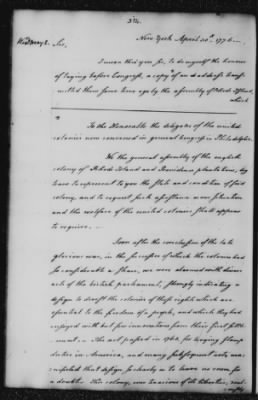 314.
New York April 30th. 1776.
Sir,
I must beg you Sir, to do myself the honor
of laying before Congress, a copy of an address trans-
mitted them some time ago by the assembly of Rhode Island,
which
To the Honorable the delegates of the united
colonies now convened in general congress in Philadelphia.
We the general assembly of the english
colony of Rhode Island and Providence plantations, beg
leave to represent to you the state and condition of said
colony, and to request such assistance as our situation
and the welfare of the united colonies shall appear
to require.
Soon after the conclusion of the late
glorious war, in the successes of which the colonies had
so considerable a share, we were alarmed with divers
acts of the british parliament, strongly indicating a
design to divest the colonies of those rights which are
essential to the freedom of a people, and which they had
enjoyed with but few innovations from their first settle
ment. The act passed in 1764, for levying stamp
duties in America, and many subsequent acts, ma-
nifested that design so clearly as to leave no room for
a doubt. This colony, ever tenacious of its liberties,